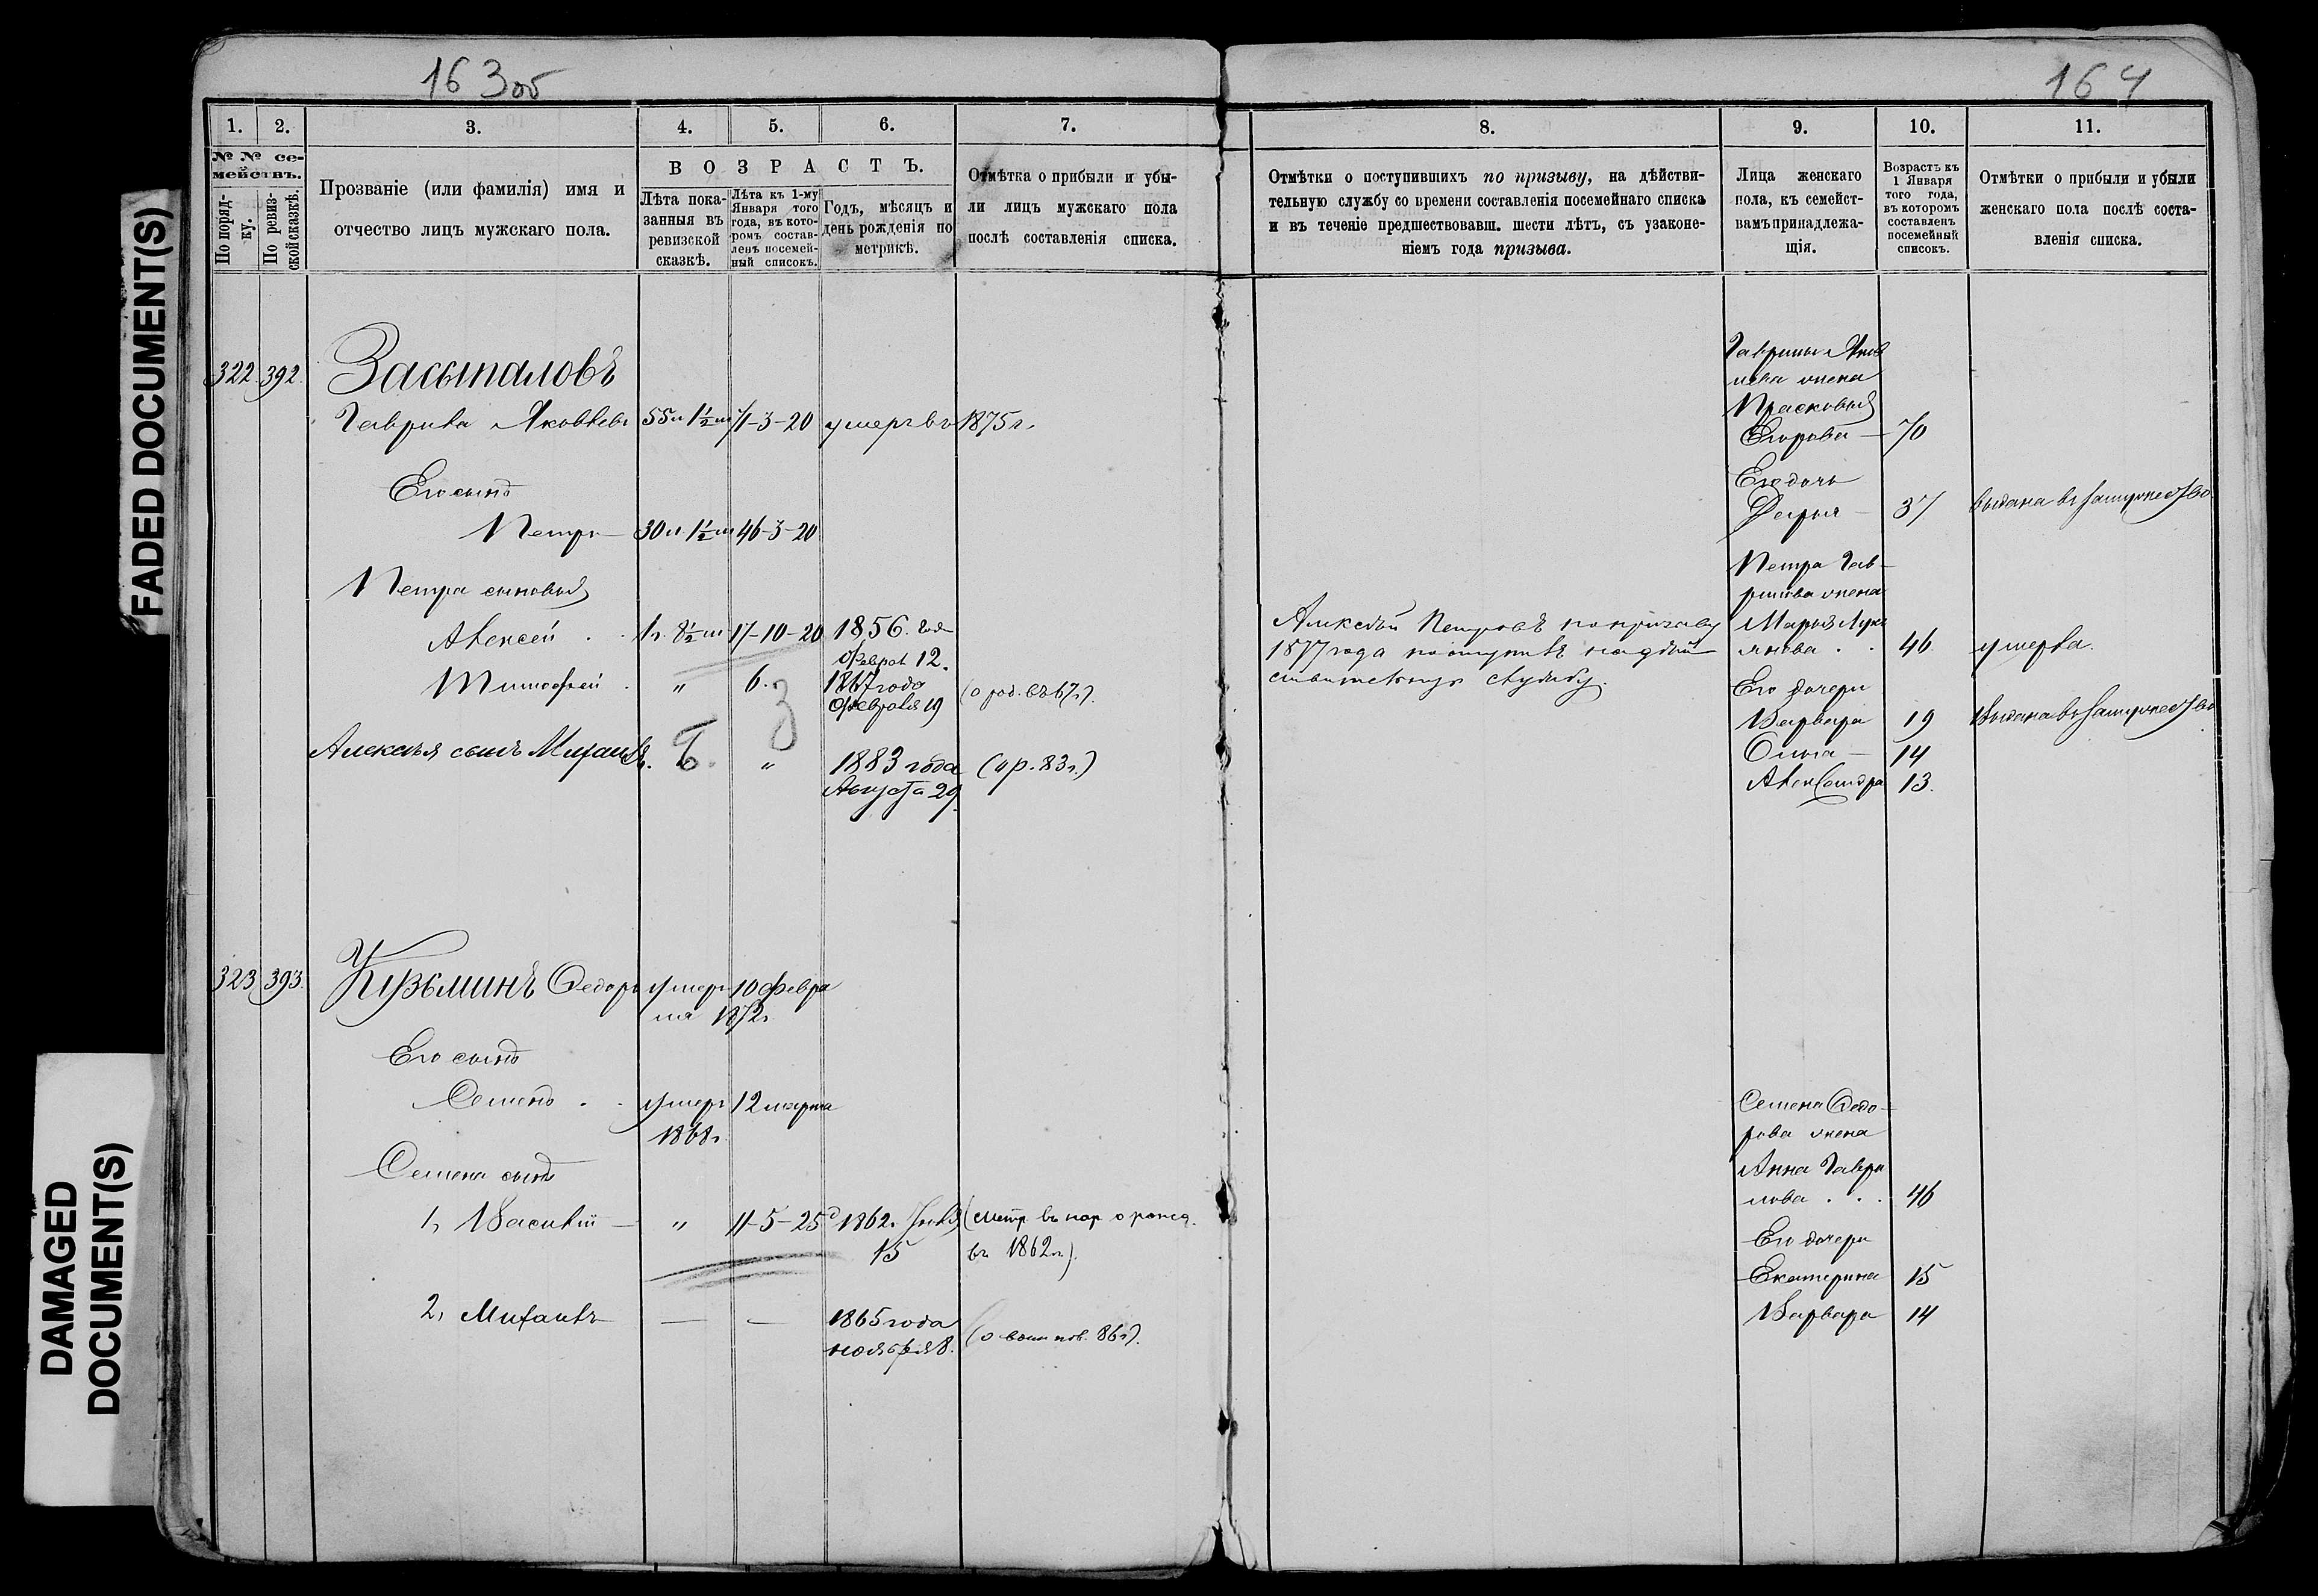 163об
164
1.
2.
3.
4.
5.
6.
7.
8.
9.
10.
11.
№ № се-
мействъ.
По поряд-
ку.
По ревиз-
ской сказкѣ.
Прозваніе (или фамилія) имя и
отчество лицъ мужскаго пола.
ВОЗРАСТЪ.
Лѣта пока-
занныя въ
ревизской
сказкѣ.
Лѣта къ 1-му
Января того
года, въ кото-
ромъ состав-
ленъ посемей-
ный списокъ.
Годъ, мѣсяцъ и
день рожденія по
метрикѣ.
Отмѣтка о прибыли и убы-
ли лицъ мужскаго пола
послѣ составленія списка.
Отмѣтки о поступившихъ по призыву, на дѣйстви-
тельную службу со времени составленія посемейнаго списка
и въ теченіе предшествовавш. шести лѣтъ, съ узаконе-
ніемъ года призыва.
Лица женскаго
пола, къ семейст-
вамъ принадлежа-
щія.
Возрастъ къ
1 Января
того года,
въ которомъ
составленъ
посемейный
списокъ.
Отмѣтки о прибыли и убыли
женскаго пола послѣ соста-
вленія списка.
322. 392. Засыпаловъ
Гаврила Яковлевъ 55 л 1½ м 71-3-20 умеръ въ 1875 г.
Его сынъ
Петръ 30 л 1½ м 46-3-20
Петра сыновья
Алексей 1 г. 8½ м 17-10-20 1856. года
Феврал 12.
Тимофей " 6. 1867 года
Февраля 19
(о род. въ 67 г.).
Алексѣя сынъ Михаилъ. Б. " 1883 года (о р. 83 г.)
3
Августа 29.
Алексѣй Петровъ по призыву
1877 года поступилъ на дѣй
ствительную службу.
Гаврилы Яков
лева жена
Прасковья
Егорова — 70
Его дочь
Дарья — 37 выдана въ замужество
Петра Гав-
рилова жена
Марья Лукь
янова . . 46. умерла.
Его дочери
Варвара 19 Выдана въ замужество
Ольга — 14
Александра 13.
323 393. Кузьминъ Федоръ умеръ 10 Февра
ля 1872 г.
Его сынъ
Семенъ . . умеръ 12 марта
1868 г.
Семена сынъ
1, Василий — " 11-5-25 1862 г.
15
въ 1862 г.).
2, Михаилъ — — 1865 года
ноября 8.
Семена Федо-
рова жена
Анна Гаври
лова . . . 46
Его дочери
Екатерина 15
Варвара 14
FADED DOCUMENT(S)
DAMAGED
DOCUMENT(S)